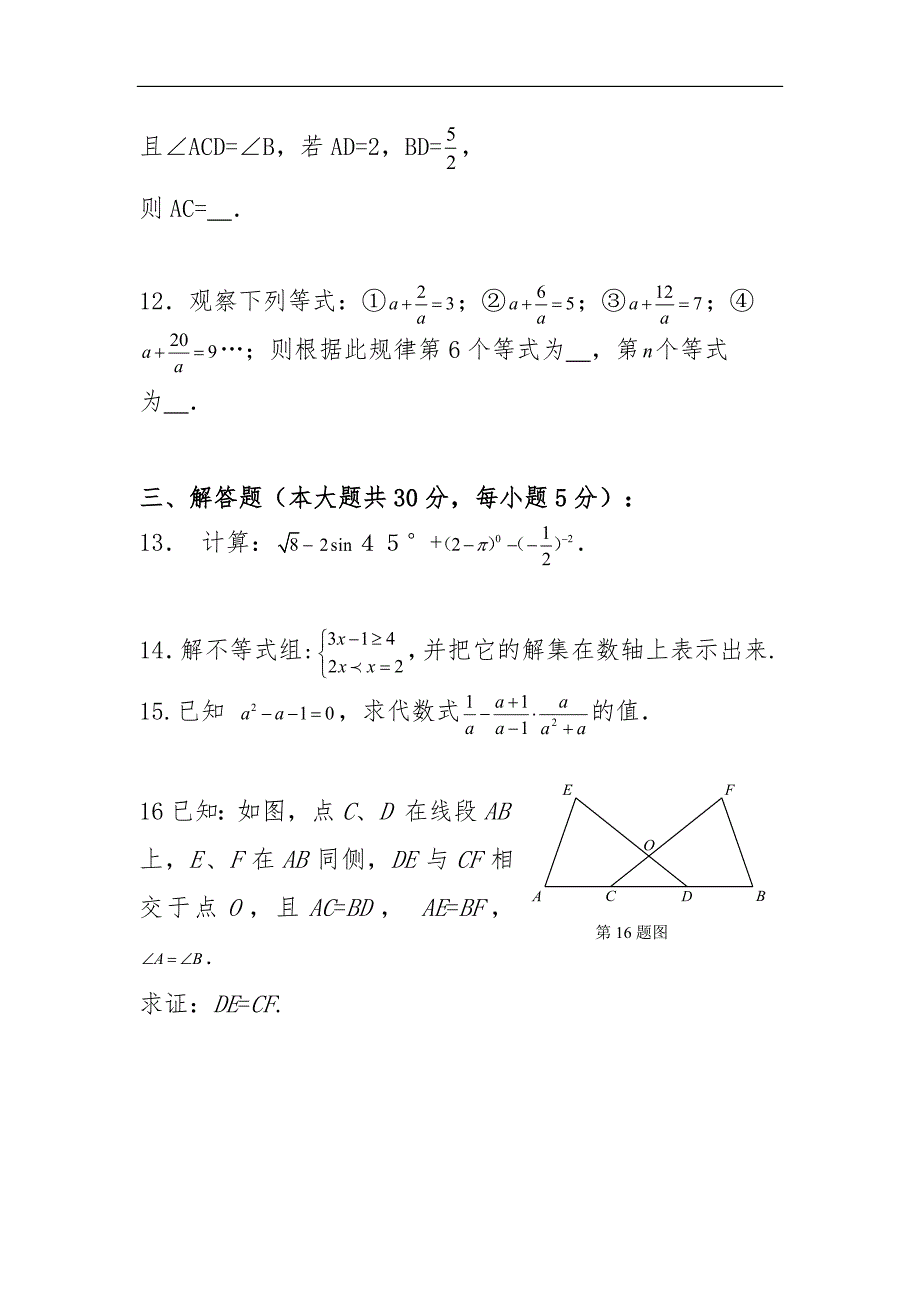 且∠ACD=∠B，若 AD=2，BD=5/2，
则 AC=__．
12．观察下列等式：①a+2/a=3；②a+6/a=5；③a+12/a=7；④
a+20/a=9…；则根据此规律第 6 个等式为__，第 n 个等式
为__．
三、解答题（本大题共 30 分，每小题 5 分）：
13． 计算：√8－2sin４５°+(2－π)⁰－(－1/2)⁻²．
14．解不等式组：{3x－1≥4 2x≺x=2，并把它的解集在数轴上表示出来．
15．已知 a²－a－1=0，求代数式 1/a－(a+1)/(a－1)·a/(a²+a) 的值．
16 已知：如图，点 C、D 在线段 AB
上，E、F 在 AB 同侧，DE 与 CF 相
交于点 O ，且 AC=BD ， AE=BF ，
∠A=∠B．
求证：DE=CF.
E F
O
A C D B
第 16 题图